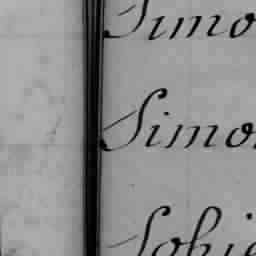 Simo
Simo
Sobie